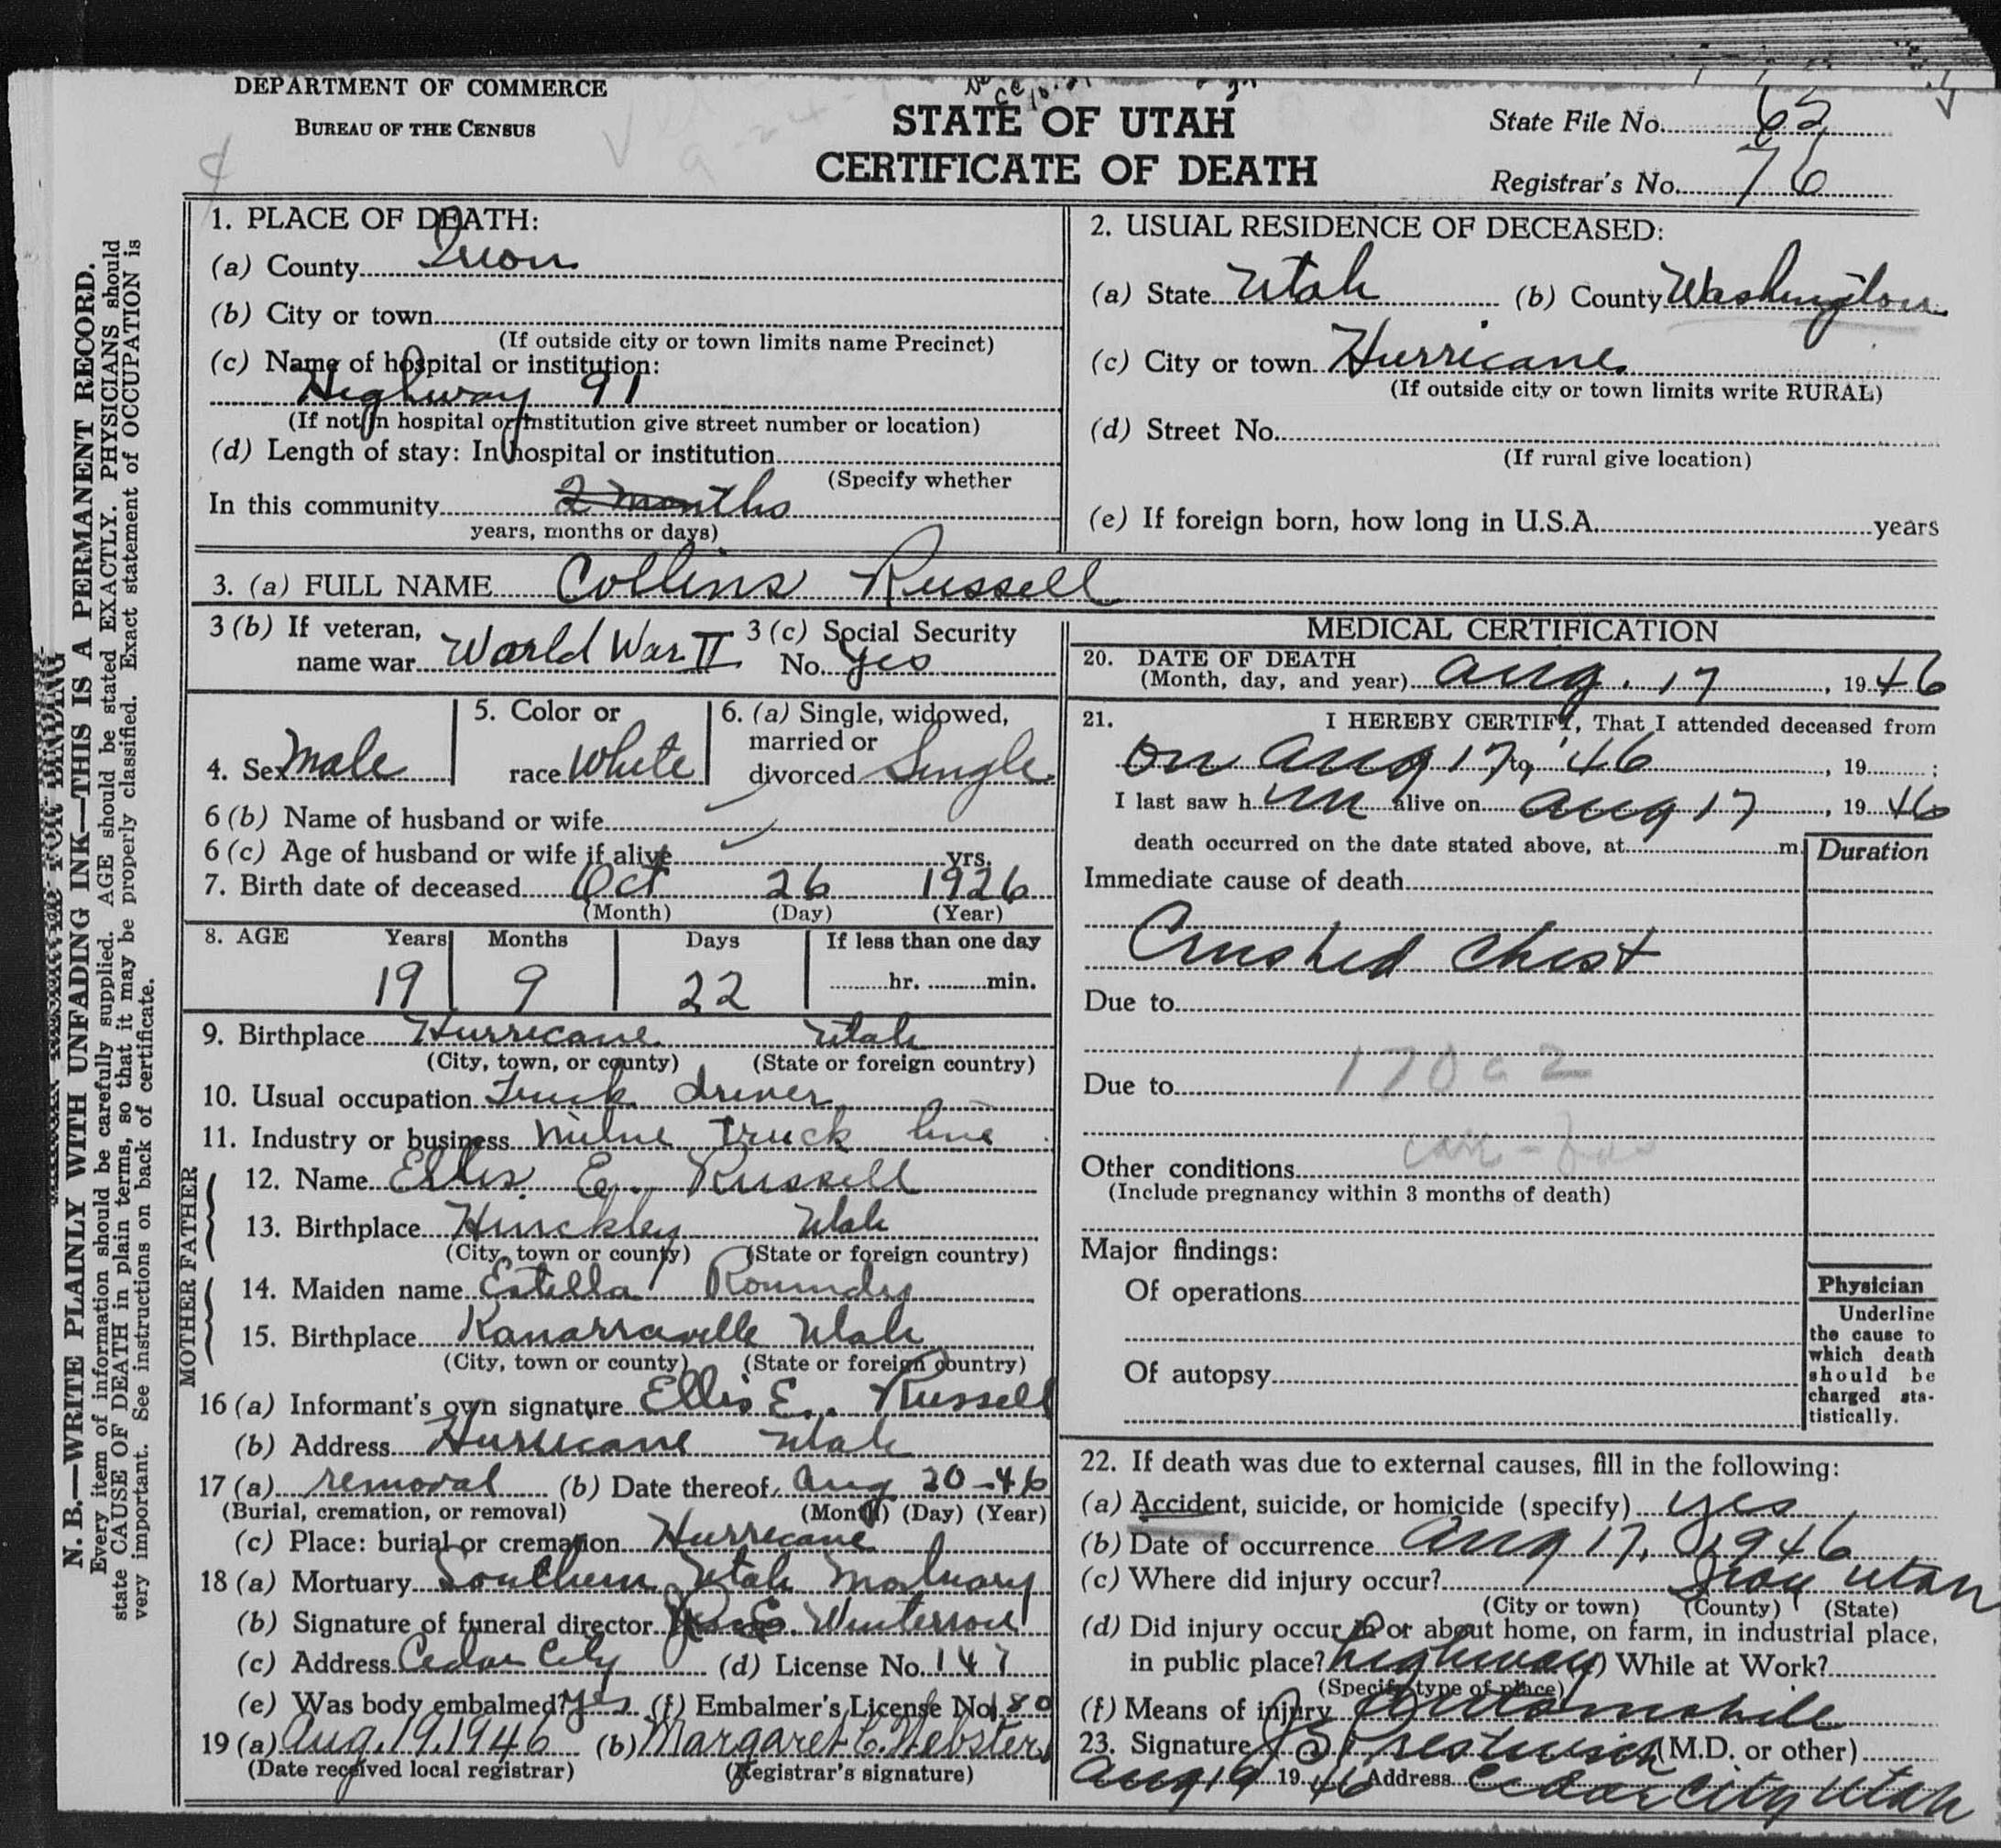 DEPARTMENT OF COMMERCE
BUREAU OF THE CENSUS
STATE OF UTAH
CERTIFICATE OF DEATH
State File No. 65
Registrar's No. 76
N. B.—WRITE PLAINLY WITH UNFADING INK—THIS IS A PERMANENT RECORD.
Every item of information should be carefully supplied. AGE should be stated EXACTLY. PHYSICIANS should
state CAUSE OF DEATH in plain terms, so that it may be properly classified. Exact statement of OCCUPATION is
very important. See instructions on back of certificate.
1. PLACE OF DEATH:
(a) County Iron
(b) City or town
(If outside city or town limits name Precinct)
(c) Name of hospital or institution:
Highway 91
(If not in hospital or institution give street number or location)
(d) Length of stay: In hospital or institution
(Specify whether
In this community 2 months
years, months or days)
2. USUAL RESIDENCE OF DECEASED:
(a) State Utah (b) County Washington
(c) City or town Hurricane
(If outside city or town limits write RURAL)
(d) Street No.
(If rural give location)
(e) If foreign born, how long in U.S.A. years
3. (a) FULL NAME Collins Russell
3 (b) If veteran, name war World War II 3 (c) Social Security No. yes
4. Sex Male 5. Color or race White 6. (a) Single, widowed, married or divorced Single
6 (b) Name of husband or wife
6 (c) Age of husband or wife if alive yrs.
7. Birth date of deceased Oct 26 1926
(Month) (Day) (Year)
8. AGE Years Months Days If less than one day
19 9 22 hr. min.
9. Birthplace Hurricane Utah
(City, town, or county) (State or foreign country)
10. Usual occupation Truck driver
11. Industry or business Milne Truck line
FATHER
12. Name Ellis E. Russell
13. Birthplace Hinckley Utah
(City, town or county) (State or foreign country)
MOTHER
14. Maiden name Estella Roundy
15. Birthplace Kanarraville Utah
(City, town or county) (State or foreign country)
16 (a) Informant's own signature Ellis E. Russell
(b) Address Hurricane Utah
17 (a) removal (b) Date thereof Aug 20-46
(Burial, cremation, or removal) (Month) (Day) (Year)
(c) Place: burial or cremation Hurricane
18 (a) Mortuary Southern Utah Mortuary
(b) Signature of funeral director E. Winterrose
(c) Address Cedar City (d) License No. 147
(e) Was body embalmed? yes (f) Embalmer's License No. 180
19 (a) Aug. 19, 1946 (b) Margaret C. Webster
(Date received local registrar) (Registrar's signature)
MEDICAL CERTIFICATION
20. DATE OF DEATH
(Month, day, and year) Aug. 17, 1946
21. I HEREBY CERTIFY, That I attended deceased from
on Aug 17 to '46, 19 ;
I last saw him alive on Aug 17, 1946
death occurred on the date stated above, at m. Duration
Immediate cause of death
Crushed chest
Due to
Due to 170c2
Other conditions
(Include pregnancy within 3 months of death)
Major findings:
Of operations
Of autopsy
Physician
Underline
the cause to
which death
should be
charged sta-
tistically.
22. If death was due to external causes, fill in the following:
(a) Accident, suicide, or homicide (specify) yes
(b) Date of occurrence Aug 17, 1946
(c) Where did injury occur? Iron Utah
(City or town) (County) (State)
(d) Did injury occur in or about home, on farm, in industrial place,
in public place? highway While at Work?
(Specify type of place)
(f) Means of injury Automobile
23. Signature Prestwich (M.D. or other)
Aug 19 1946 Address Cedar City Utah